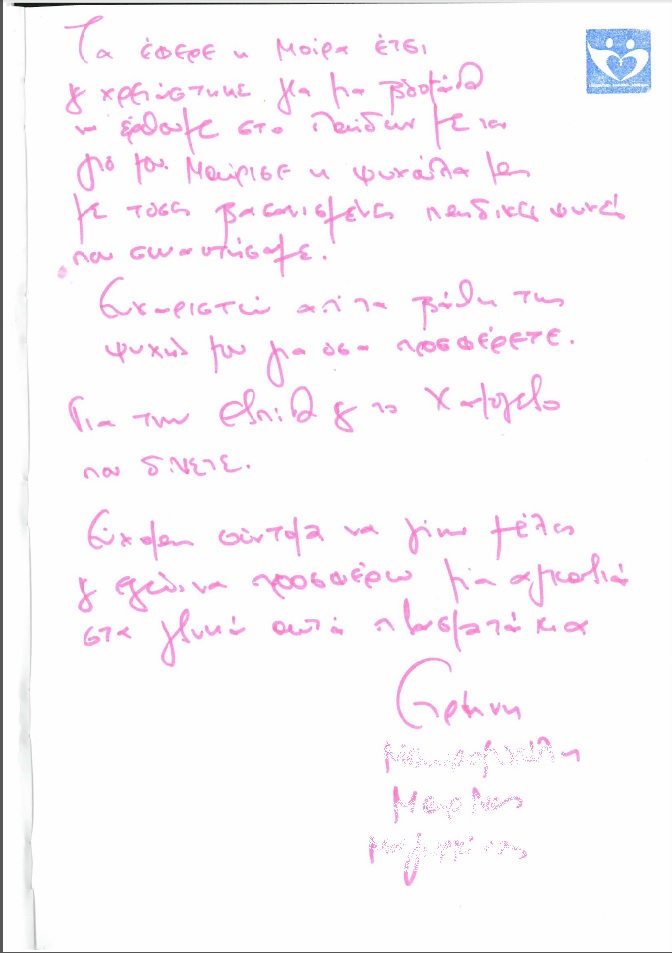 Τα έφερε η μοίρα έτσι
& χρειάστηκε για μια βδομάδα
να έρθουμε στο Παίδων με το
γιό μου. Μαύρισε η ψυχούλα μας
με τόσες βασανισμένες παιδικές ψυχές
που συναντήσαμε.
Ευχαριστώ από τα βάθη της
ψυχής μου για όσα προσφέρετε.
Για την ελπίδα & το χαμόγελο
που δίνετε.
Εύχομαι σύντομα να γίνω μέλος
& εγώ, να προσφέρω μία αγκαλιά
στα γλυκά αυτά πλασματάκια
Ειρήνη